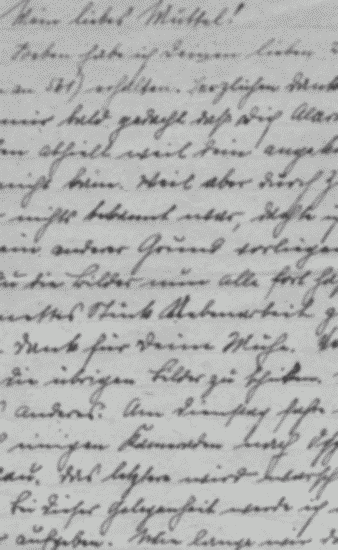 Mein liebes Muttel!
Soeben habe ich Deinen lieben
an 561) erhalten. Herzlichen Dank
mir bald gedacht daß Dich Alar
en abhielt weil kein angek
nicht kam. Weil aber durch
nichts bekannt war, dachte i
ein anderer Grund vorliegen
Du die Bilder nun alle fort ha
nettes Stück Nebenarbeit g
Dank für Deine Mühe.
die übrigen Bilder zu schicken.
anderes. Am Dienstag fahre
einigen Kameraden nach
au. Das letztere wird warsch
Bei dieser Gelegenheit werde ich
aufgeben. Wie lange wir